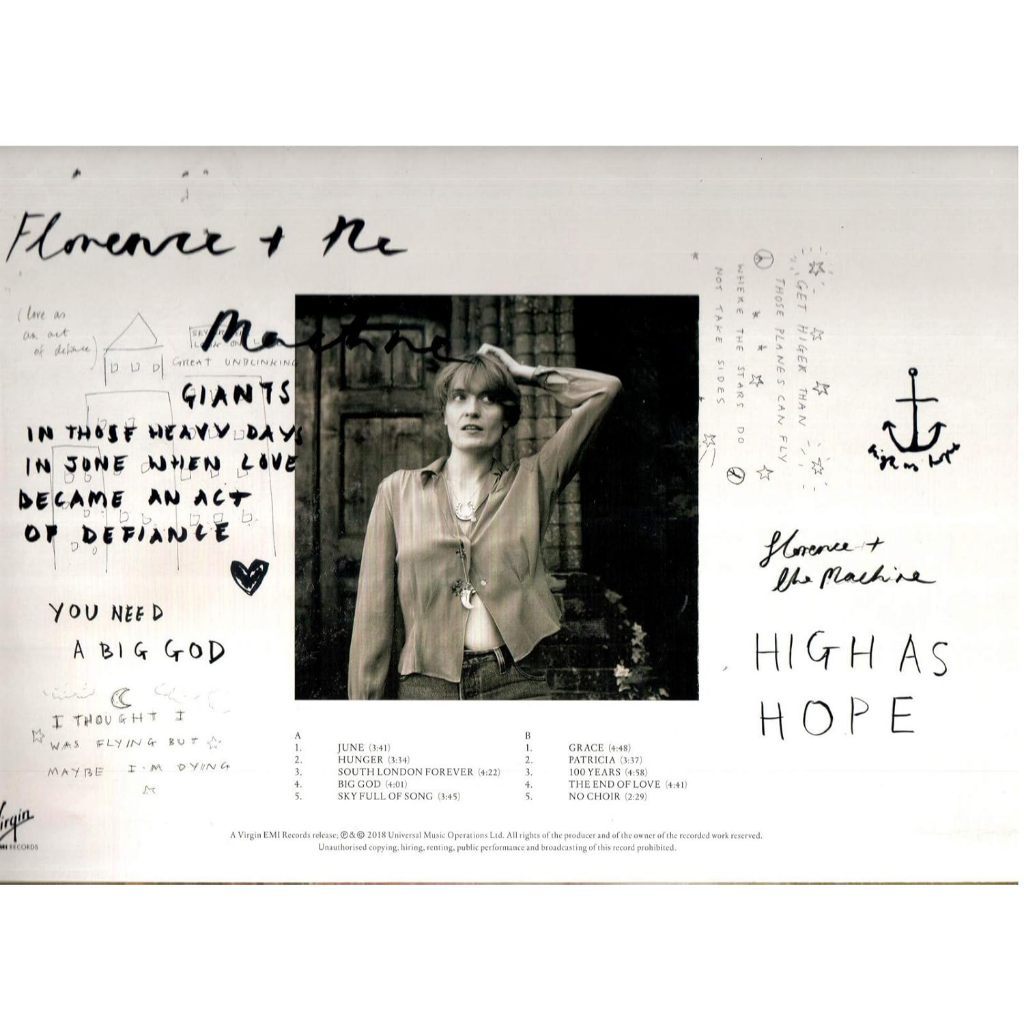 Florence + the
Machine
(love as
an act
of defiance)
GREAT UNBLINKING
GIANTS
IN THOSE HEAVY DAYS
IN JUNE WHEN LOVE
BECAME AN ACT
OF DEFIANCE
YOU NEED
A BIG GOD
I THOUGHT I
WAS FLYING BUT
MAYBE I'M DYING
GET HIGER THAN
THOSE PLANES CAN FLY
WHERE THE STARS DO
NOT TAKE SIDES
high as hope
florence +
the Machine
HIGH AS
HOPE
A
1. JUNE (3:41)
2. HUNGER (3:34)
3. SOUTH LONDON FOREVER (4:22)
4. BIG GOD (4:01)
5. SKY FULL OF SONG (3:45)
B
1. GRACE (4:48)
2. PATRICIA (3:37)
3. 100 YEARS (4:58)
4. THE END OF LOVE (4:41)
5. NO CHOIR (2:29)
Virgin
EMI RECORDS
A Virgin EMI Records release; ℗ & © 2018 Universal Music Operations Ltd. All rights of the producer and of the owner of the recorded work reserved.
Unauthorised copying, hiring, renting, public performance and broadcasting of this record prohibited.